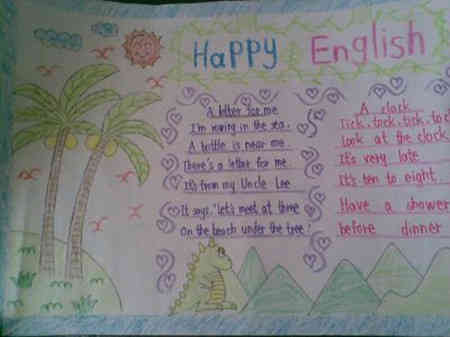 Happy English
A letter for me
I'm rowing in the sea.
A bottle is near me.
There's a letter for me.
It's from my Uncle Lee
It says, "let's meet at three
On the beach under the tree!
A clock
Tick, tock, tick, toc
Look at the clock
It's very late
It's ten to eight
Have a shower
before dinner